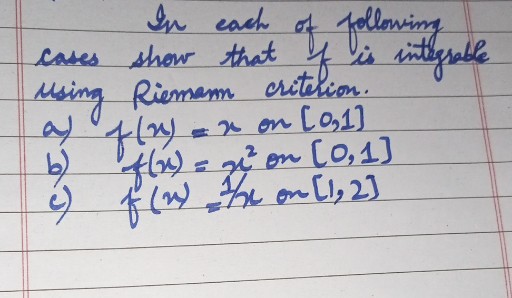 In each of following
cases show that f is integrable
using Riemann criterion.
a) f(x) = x on [0,1]
b) f(x) = x² on [0,1]
c) f(x) = 1/x on [1,2]